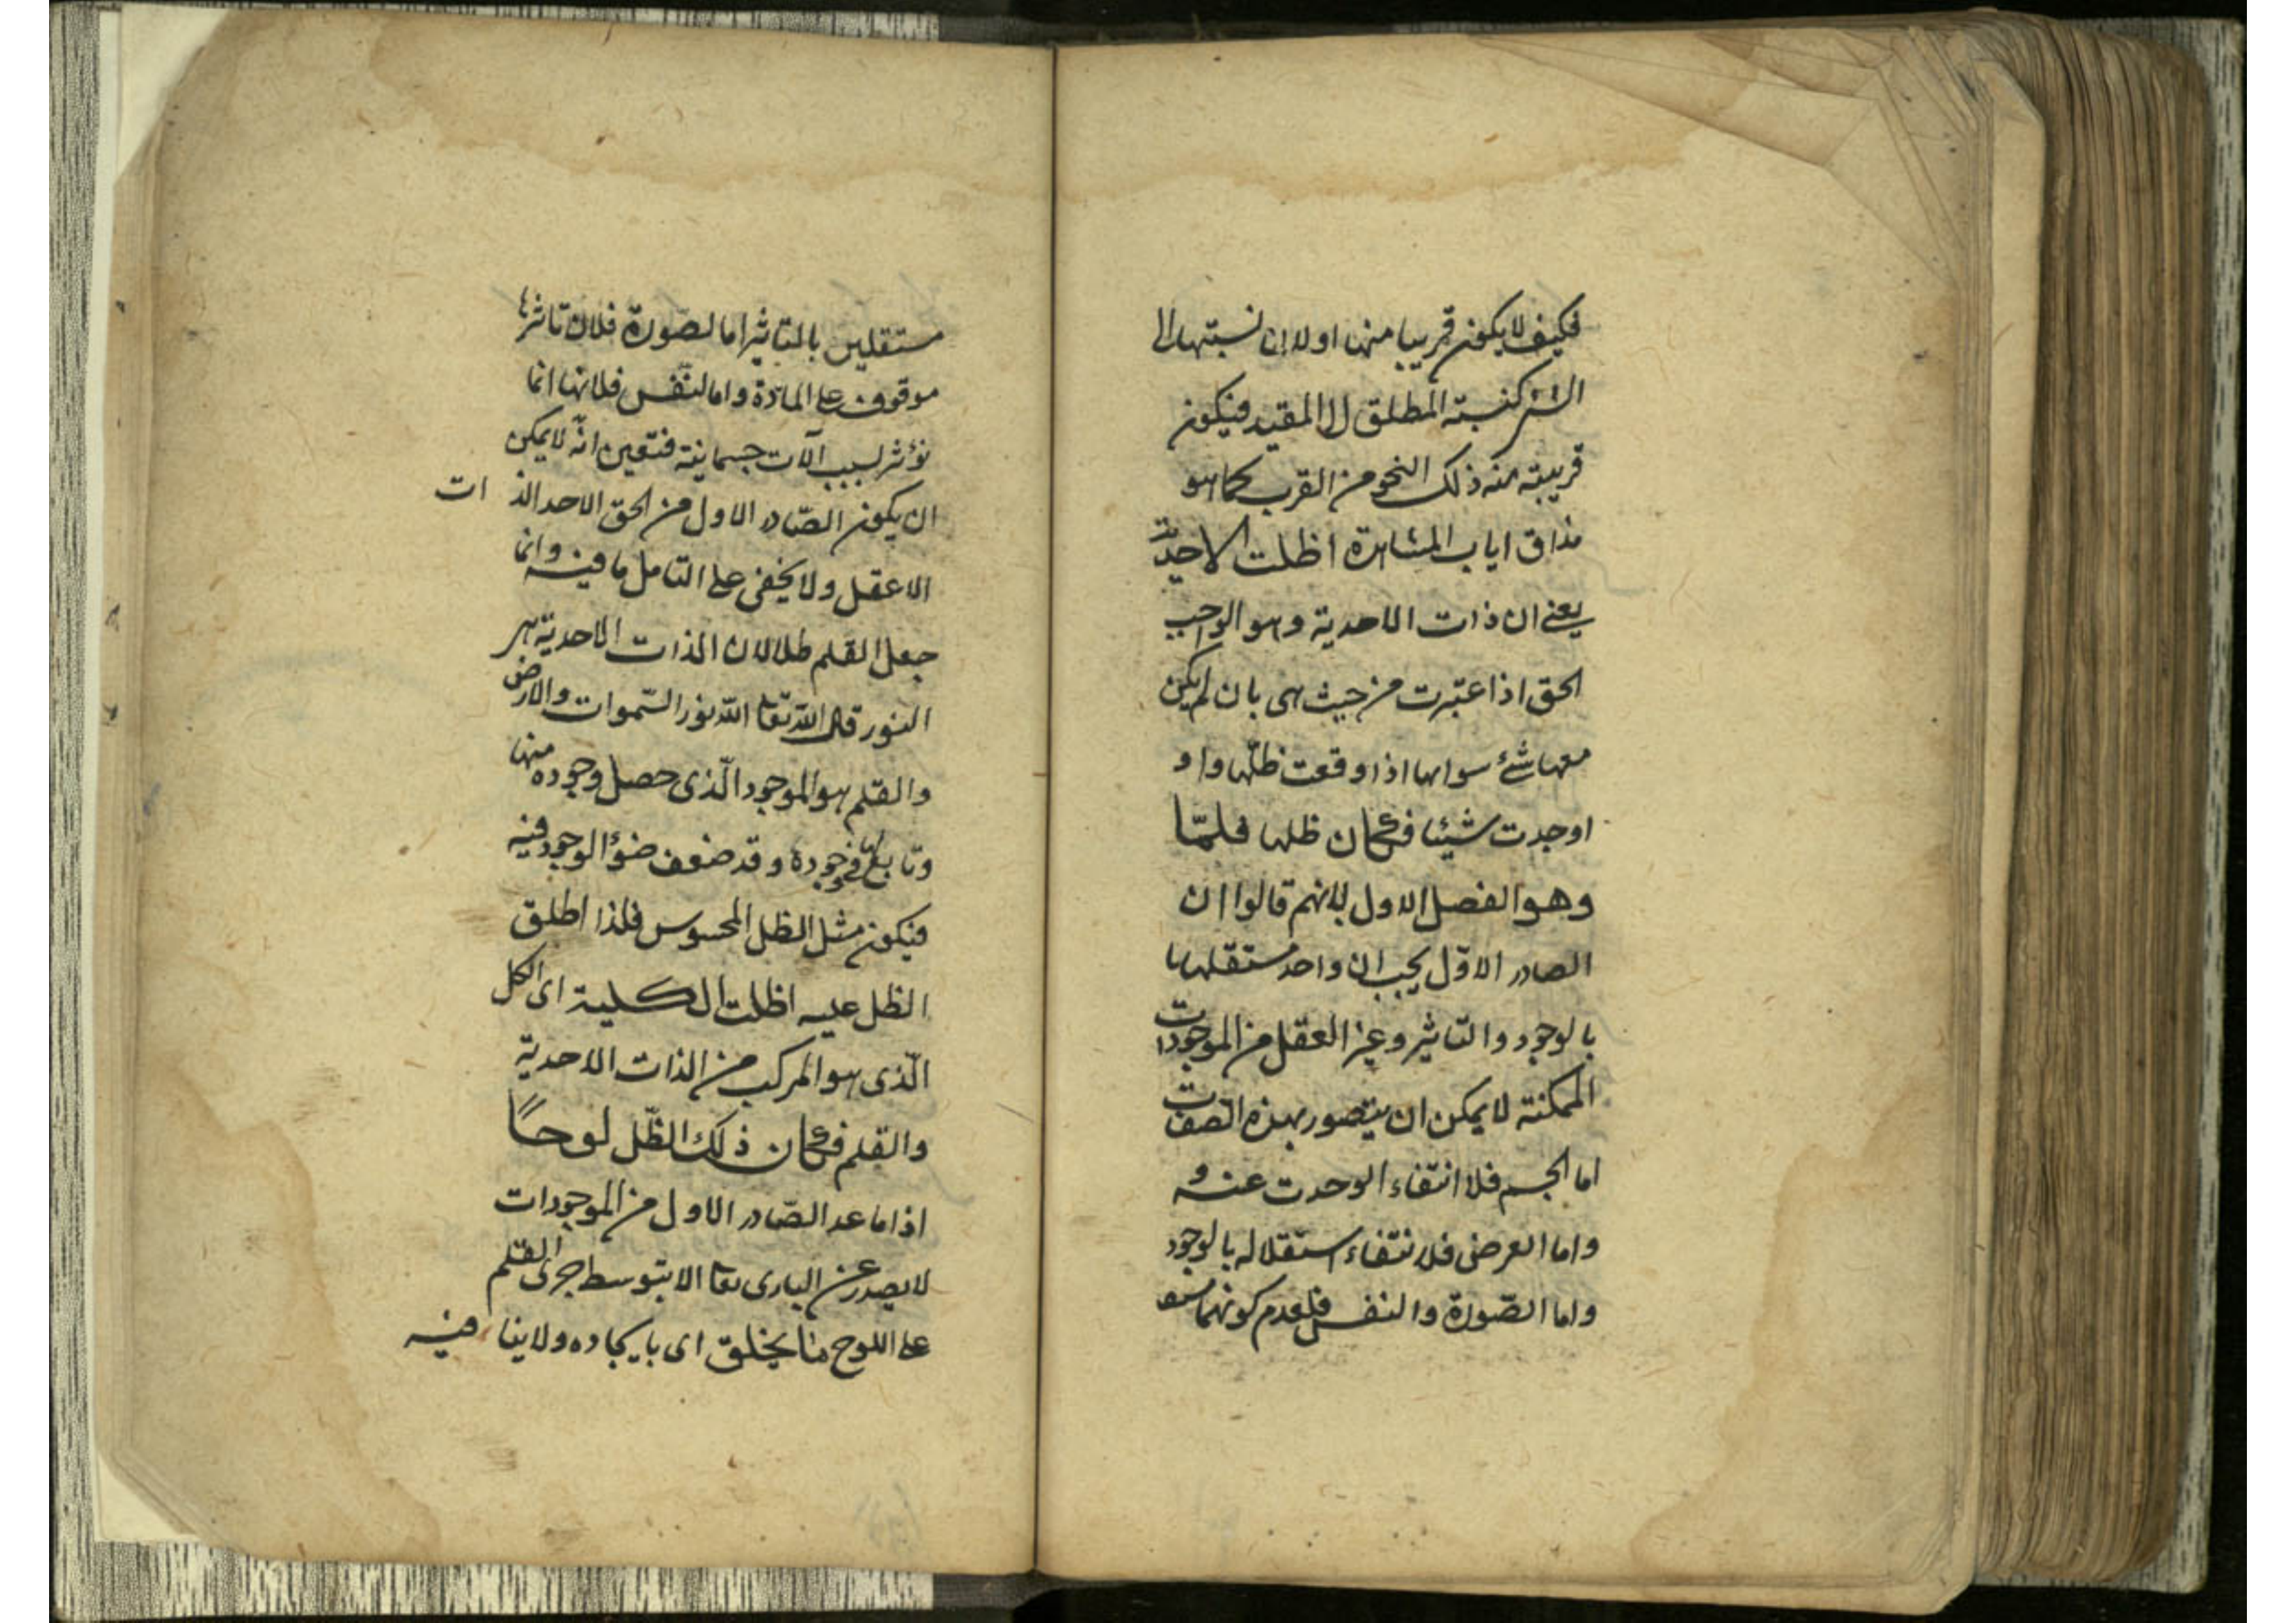 فكيف لا يكون قريبا منها اولا ان نسبتها الى
الشئ كنسبته المطلق الى المقيد فيكون
قريبته منه ذلك النحو من القرب كما هو
مذاق ارباب المشاهدة اظلت الاحدية
يعنى ان ذات الاحدية وهو الواجب
الحق اذا اعتبرت من حيث هى بان لم يكن
معها شئ سواها اذا وقعت ظلها وا و
اوجدت شيئا فكان ظلها قلما
وهو الفصل الاول لانهم قالوا ان
الصادر الاوّل يجب ان واحد مستقلها
بالوجود والتاثير وغير العقل من الموجودات
الممكنة لا يمكن ان يتصور بهذه الصفات
اما الجسم فلا انتفاء الوحدت عنه و
واما العرض فلانتفاء استقلاله بالوجود
واما الصّورة والنفس فلعدم كونهما
مستقلين بالتاثير اما لصّورة فلان تاثرها
موقوف على المادّة واما لنّفس فلانها انما
تؤثر بسبب آلات جسمانية فتعين انّه لا يمكن
ان يكون الصّادر الاول من الحق الاحد الذات
الا عقل ولا يخفى على التامل ما فيه وانما
جعل القلم ظلا لان الذات الاحدية هى
النور قال اللّه تعا اللّه نور السّموات والارض
والقلم هو الموجود الّذى حصل وجوده منها
وتابع لها فى وجوده وقد ضعف ضوؤ الوجود فيه
فيكون مثل الظل المحسوس فلذا اطلق
الظل عليه اظلت الكلية اى الكل
الّذى هو المركب من الذات الاحدية
والقلم فكان ذلك الظّل لوحاً
اذ اما عدا الصّادر الاول من الموجودات
لا يصدر عن البارى تعا الا بتوسط جرى القلم
على اللوح ما يخلق اى بايجاده ولا ينا فيه